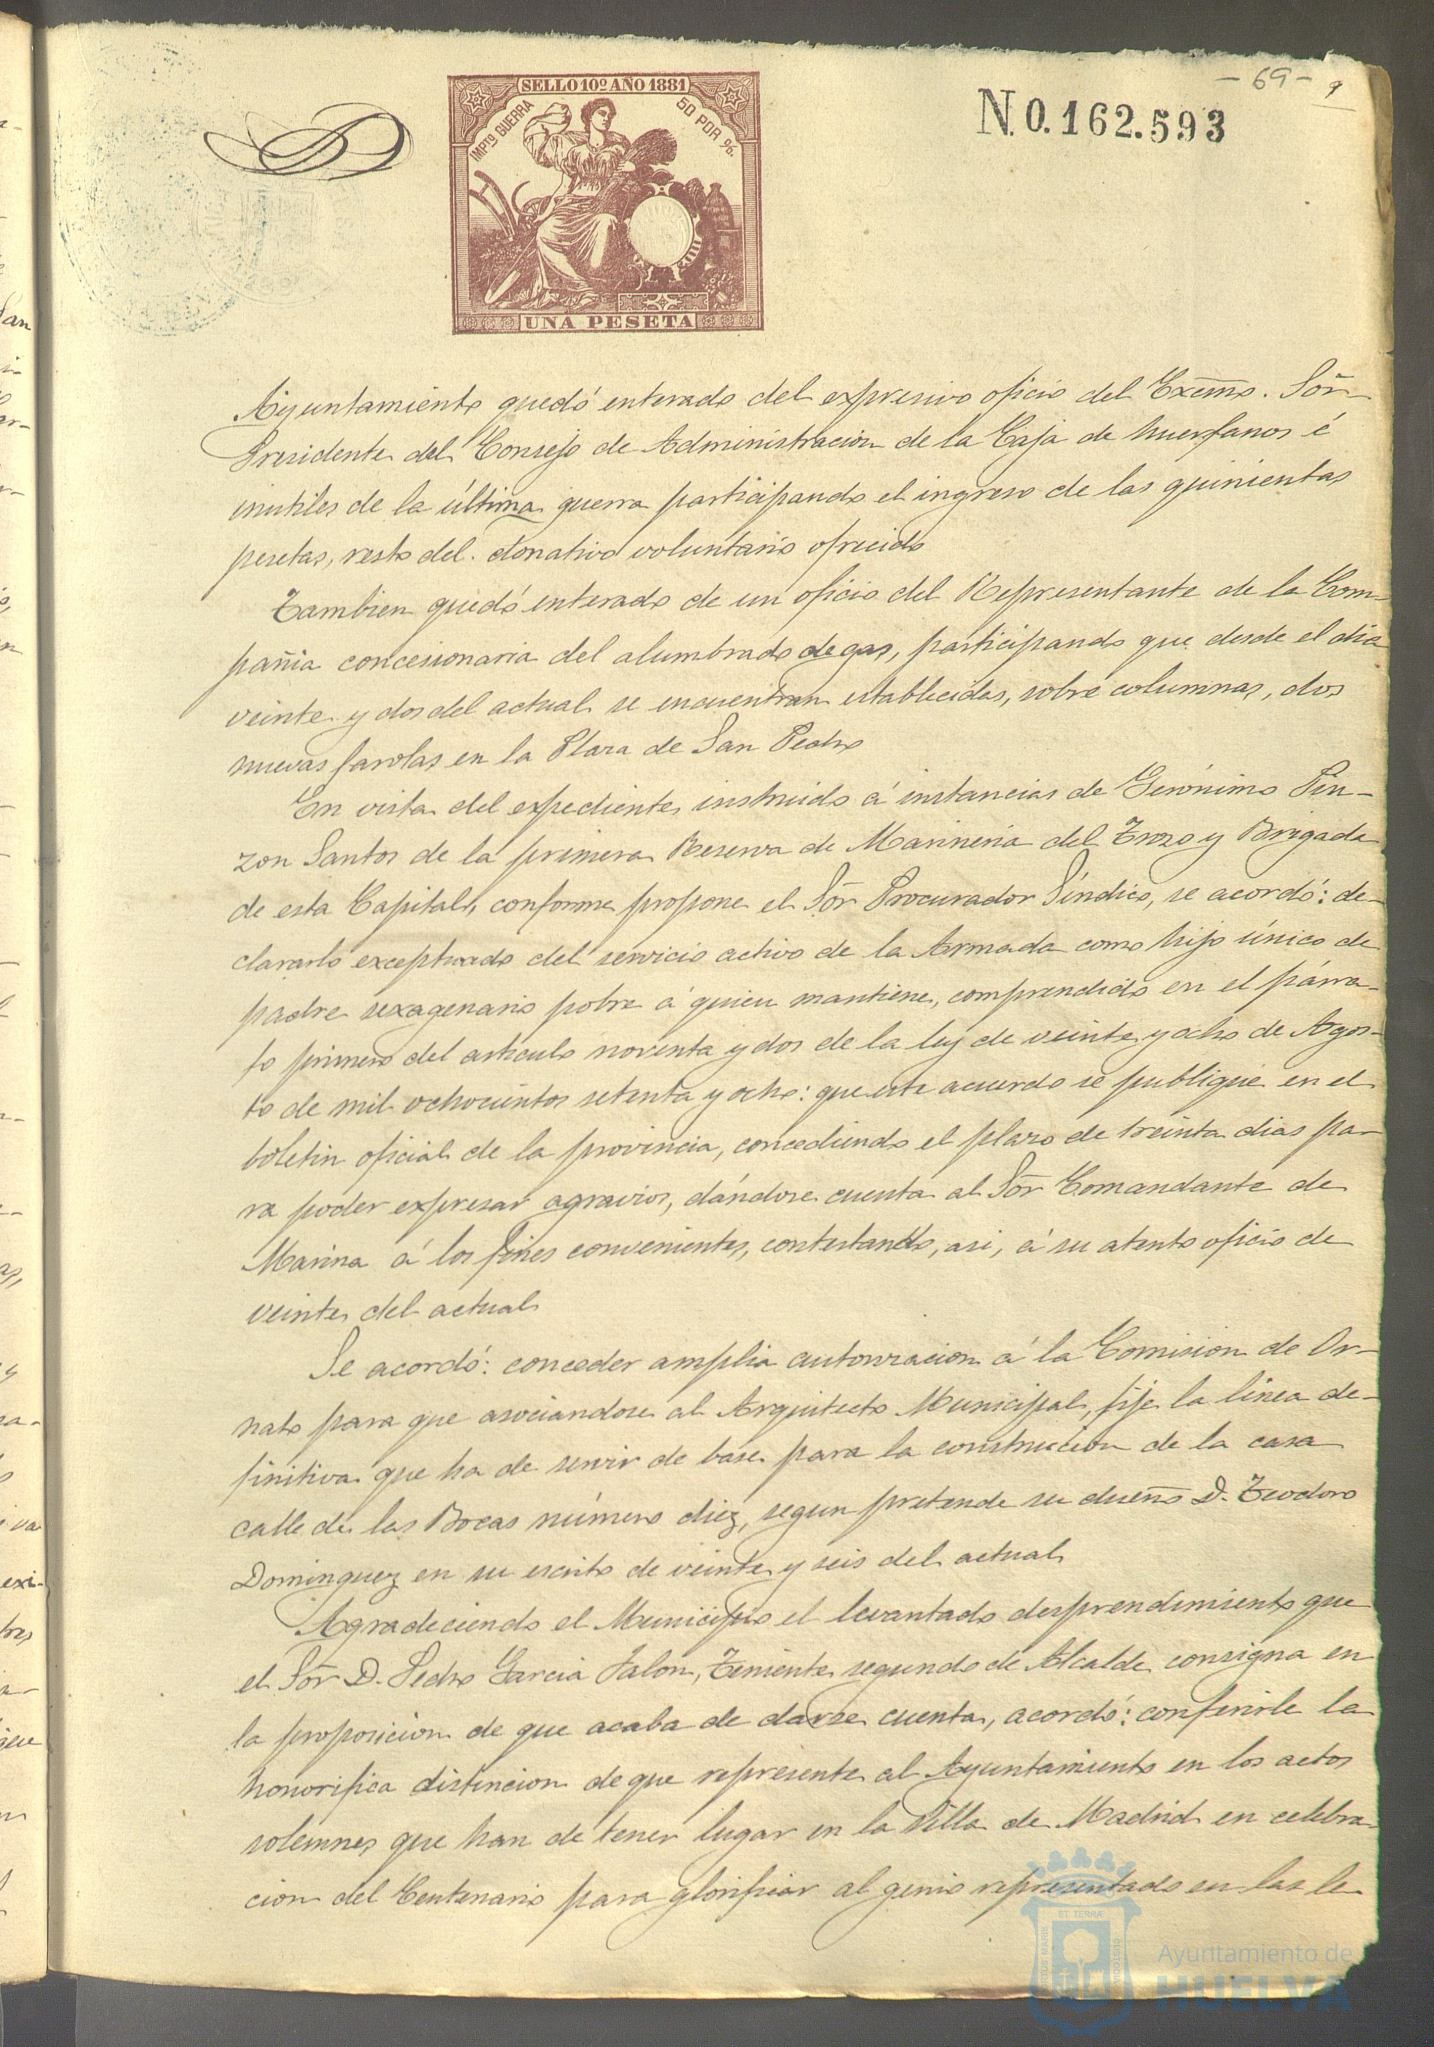 - 69 -
SELLO 10º AÑO 1881
IMPTº GUERRA
50 POR %.
UNA PESETA
N.0.162.593
Ayuntamiento quedó enterado del expresivo oficio del Excmo. Sõr
Presidente del Consejo de Administracion de la Caja de huerfanos é
inutiles de la última guerra participando el ingreso de las quinientas
pesetas, resto del donativo voluntario ofrecido
Tambien quedó enterado de un oficio del Representante de la Com-
pañia concesionaria del alumbrado de gas, participando que desde el dia
veinte y dos del actual se encuentran establecidas, sobre columnas, dos
nuevas farolas en la Plaza de San Pedro
En vista del expediente instruido á instancias de Gerónimo Pin-
zon Santos de la primera Reserva de Marineria del Trozo y Brigada
de esta Capital, conforme propone el Sõr Procurador Síndico, se acordó: de-
clararlo exceptuado del servicio activo de la Armada como hijo único de
padre sexagenario pobre á quien mantiene, comprendido en el párra-
fo primero del articulo noventa y dos de la ley de veinte y ocho de Agos-
to de mil ochocientos setenta y ocho: que este acuerdo se publique en el
boletin oficial de la provincia, concediendo el plazo de treinta dias pa-
ra poder expresar agravios, dándose cuenta al Sõr Comandante de
Marina á los fines convenientes, contestando, asi, á su atento oficio de
veinte del actual
Se acordó: conceder amplia autorizacion á la Comision de Or-
nato para que asociandose al Arquitecto Municipal, fije la linea de-
finitiva que ha de servir de base para la construccion de la casa
calle de las Bocas número diez, segun pretende su dueño D. Teodoro
Dominguez en su escrito de veinte y seis del actual
Agradeciendo el Municipio el levantado desprendimiento que
el Sõr D. Pedro Garcia Jalon, Teniente segundo de Alcalde consigna en
la proposicion de que acaba de darse cuenta, acordó: conferirle la
honorifica distincion de que represente al Ayuntamiento en los actos
solemnes que han de tener lugar en la Villa de Madrid en celebra-
cion del Centenario para glorificar al genio representado en las le-
Ayuntamiento de
HUELVA